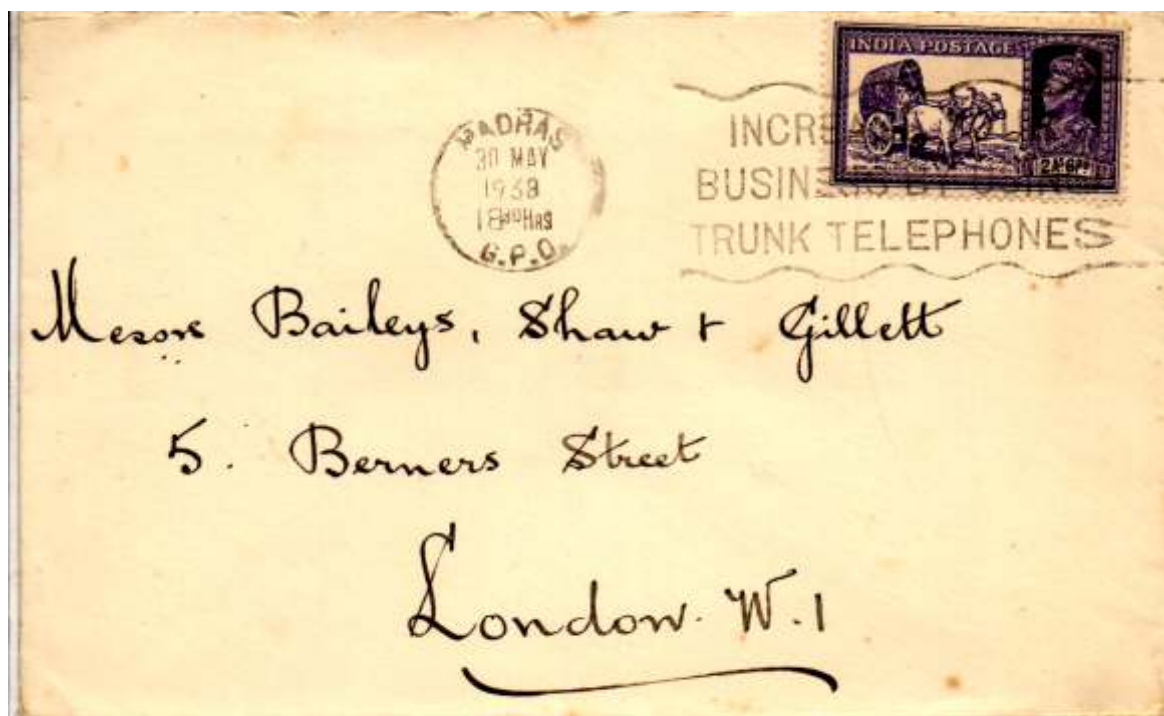 INDIA POSTAGE
2As6Ps
MADRAS
30 MAY
1938
18 30 HRS
G.P.O.
BUSINESS BY
TRUNK TELEPHONES
Messrs Baileys, Shaw + Gillett
5. Berners Street
London. W.1